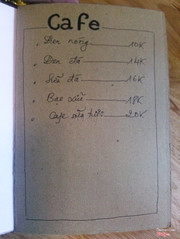 Cafe
Đen nóng 10K
Đen đá 14K
Sữa đá 16K
Bạc xỉu 18K
Cafe sữa tươi 20K